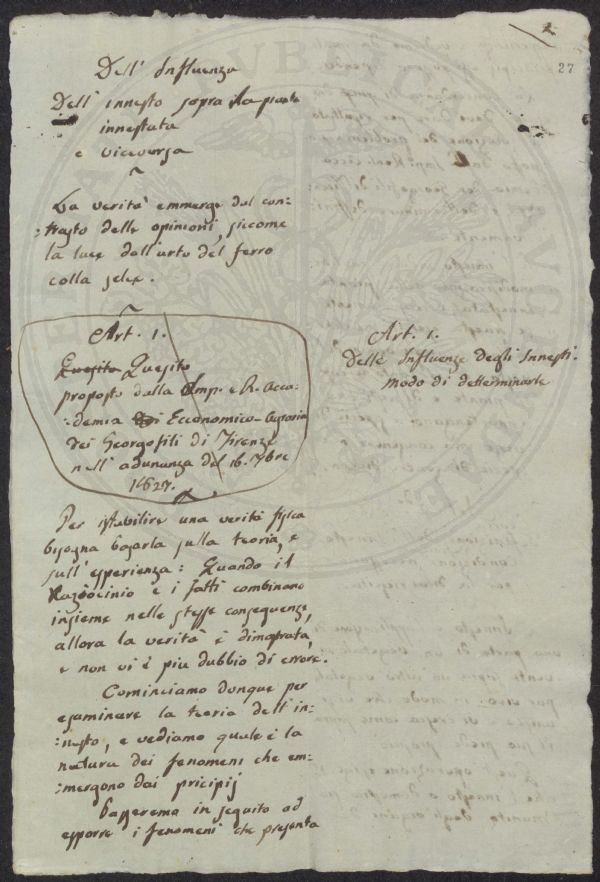 27
Dell' Influenza
Dell' innesto sopra la pianta
innestata
e viceversa
La verità emmerge dal con-
:trasto delle opinioni, siccome
la luce dall'urto del ferro
colla selce.
Art. 1.
Quesito Quesito
proposto dalla Imp. e R. Acca-
:demia di Economico-Agraria
dei Georgofili di Firenze
nell'adunanza del 16. 7bre
1827.
Art. 1.
Delle Influenze degli Innesti.
modo di determinarle
Per istabilire una verità fisica
bisogna basarla sulla teoria, e
sull'esperienza: Quando il
Raziocinio e i fatti combinano
insieme nelle stesse conseguenze,
allora la verità è dimostrata,
e non vi è piu dubbio di errore.
Cominciamo dunque per
esaminare la teoria dell'in-
:nesto, e vediamo quale è la
natura dei fenomeni che em-
:mergono dai pricipij
Passerema in seguito ad
esporre i fenomeni che presenta